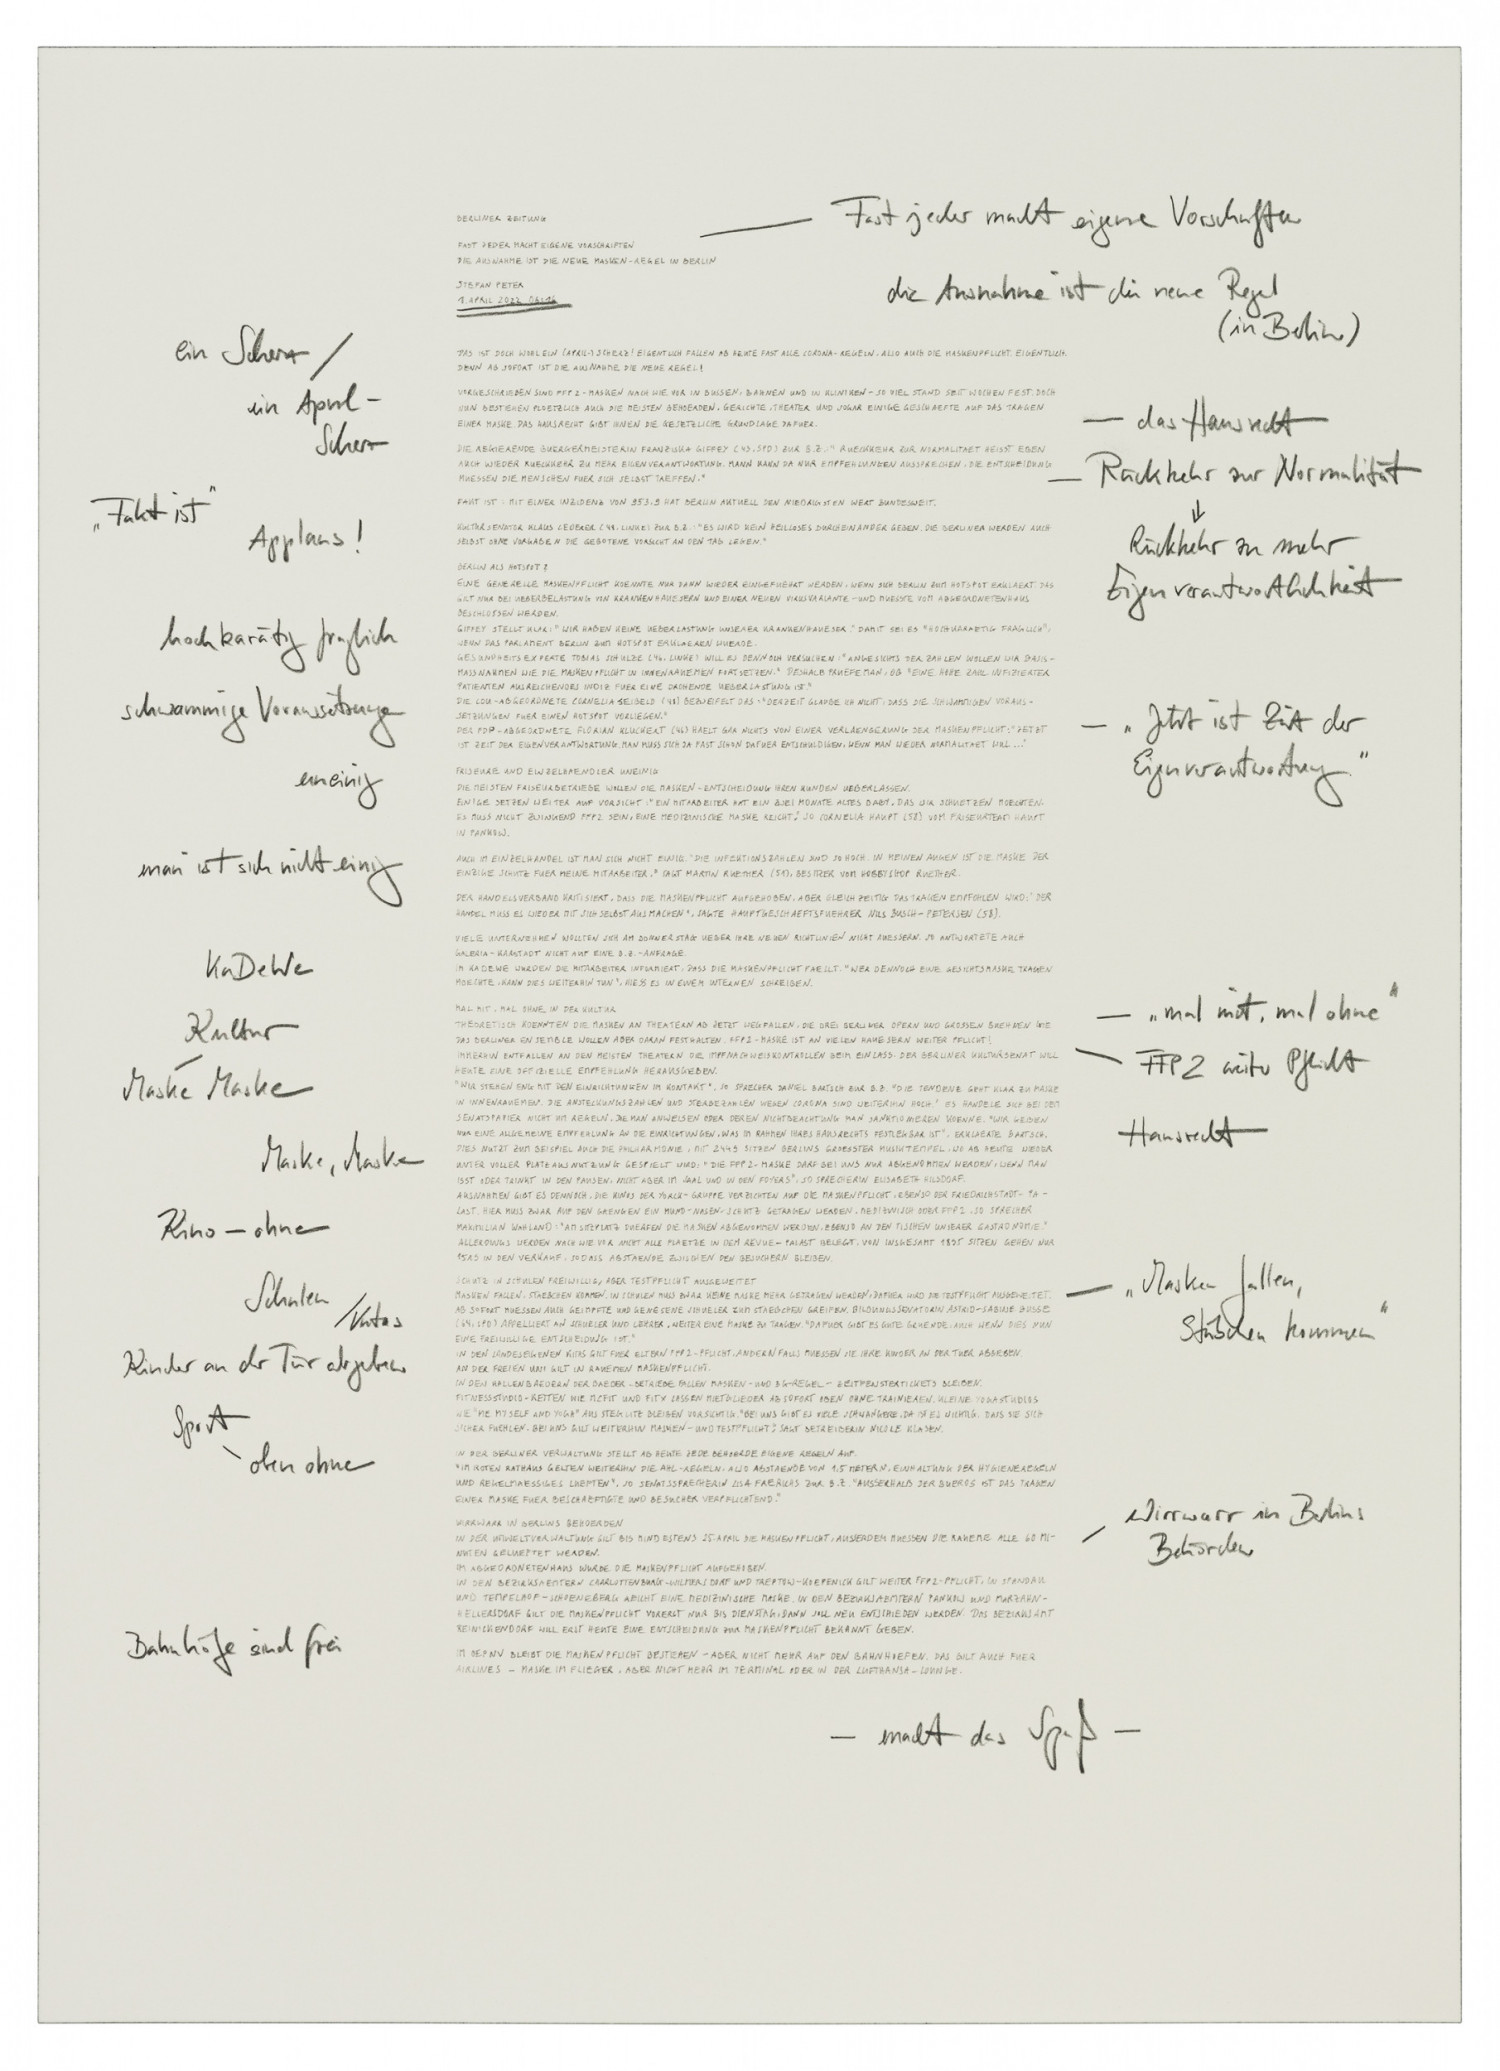 BERLINER ZEITUNG
FAST JEDER MACHT EIGENE VORSCHRIFTEN
DIE AUSNAHME IST DIE NEUE MASKEN-REGEL IN BERLIN
STEFAN PETER
1. APRIL 2022
Fast jeder macht eigene Vorschriften
die Ausnahme ist die neue Regel
(in Berlin)
ein Scherz /
ein April-
Scherz
DAS IST DOCH WOHL EIN (APRIL-) SCHERZ! EIGENTLICH FALLEN AB HEUTE FAST ALLE CORONA-REGELN, ALSO AUCH DIE MASKENPFLICHT. EIGENTLICH.
DENN AB SOFORT IST DIE AUSNAHME DIE NEUE REGEL!
VORGESCHRIEBEN SIND FFP2-MASKEN NACH WIE VOR IN BUSSEN, BAHNEN UND IN KLINIKEN - SO VIEL STAND SEIT WOCHEN FEST. DOCH
NUN BESTEHEN PLOETZLICH AUCH DIE MEISTEN BEHOERDEN, GERICHTE, THEATER UND SOGAR EINIGE GESCHAEFTE AUF DAS TRAGEN
EINER MASKE. DAS HAUSRECHT GIBT IHNEN DIE GESETZLICHE GRUNDLAGE DAFUER.
— das Hausrecht
DIE REGIERENDE BUERGERMEISTERIN FRANZISKA GIFFEY (43, SPD) ZUR B.Z.: "RUECKKEHR ZUR NORMALITAET HEISST EBEN
AUCH WIEDER RUECKKEHR ZU MEHR EIGENVERANTWORTUNG. MANN KANN DA NUR EMPFEHLUNGEN AUSSPRECHEN, DIE ENTSCHEIDUNG
MUESSEN DIE MENSCHEN FUER SICH SELBST TREFFEN."
— Rückkehr zur Normalität
↓
Rückkehr zu mehr
Eigenverantwortlichkeit
„Fakt ist"
Applaus!
FAKT IST: MIT EINER INZIDENZ VON 953.9 HAT BERLIN AKTUELL DEN NIEDRIGSTEN WERT BUNDESWEIT.
KULTURSENATOR KLAUS LEDERER (48, LINKE) ZUR B.Z.: "ES WIRD KEIN HEILLOSES DURCHEINANDER GEBEN. DIE BERLINER WERDEN AUCH
SELBST OHNE VORGABEN DIE GEBOTENE VORSICHT AN DEN TAG LEGEN."
BERLIN ALS HOTSPOT?
EINE GENERELLE MASKENPFLICHT KOENNTE NUR DANN WIEDER EINGEFUEHRT WERDEN, WENN SICH BERLIN ZUM HOTSPOT ERKLAERT. DAS
GILT NUR BEI UEBERBELASTUNG VON KRANKENHAEUSERN UND EINER NEUEN VIRUSVARIANTE - UND MUESSTE VOM ABGEORDNETENHAUS
BESCHLOSSEN WERDEN.
hochkarätig fraglich
GIFFEY STELLT KLAR: "WIR HABEN KEINE UEBERLASTUNG UNSERER KRANKENHAEUSER." DAMIT SEI ES "HOCHKARAETIG FRAGLICH",
WENN DAS PARLAMENT BERLIN ZUM HOTSPOT ERKLAEREN WUERDE.
GESUNDHEITSEXPERTE TOBIAS SCHULZE (46, LINKE) WILL ES DENNOCH VERSUCHEN: "ANGESICHTS DER ZAHLEN WOLLEN WIR BASIS-
MASSNAHMEN WIE DIE MASKENPFLICHT IN INNENRAEUMEN FORTSETZEN." DESHALB PRUEFE MAN, OB "EINE HOHE ZAHL INFIZIERTER
PATIENTEN AUSREICHENDES INDIZ FUER EINE DROHENDE UEBERLASTUNG IST."
schwammige Voraussetzungen
DIE CDU-ABGEORDNETE CORNELIA SEIBELD (48) BEZWEIFELT DAS: "DERZEIT GLAUBE ICH NICHT, DASS DIE SCHWAMMIGEN VORAUS-
SETZUNGEN FUER EINEN HOTSPOT VORLIEGEN."
DER FDP-ABGEORDNETE FLORIAN KLUCKERT (46) HAELT GAR NICHTS VON EINER VERLAENGERUNG DER MASKENPFLICHT: "JETZT
IST ZEIT DER EIGENVERANTWORTUNG. MAN MUSS SICH JA FAST SCHON DAFUER ENTSCHULDIGEN, WENN MAN WIEDER NORMALITAET WILL..."
— „Jetzt ist Zeit der
Eigenverantwortung."
uneinig
FRISEURE UND EINZELHAENDLER UNEINIG
DIE MEISTEN FRISEURBETRIEBE WOLLEN DIE MASKEN-ENTSCHEIDUNG IHREN KUNDEN UEBERLASSEN.
EINIGE SETZEN WEITER AUF VORSICHT: "EIN MITARBEITER HAT EIN ZWEI MONATE ALTES BABY, DAS WIR SCHUETZEN MOECHTEN.
ES MUSS NICHT ZWINGEND FFP2 SEIN, EINE MEDIZINISCHE MASKE REICHT," SO CORNELIA HAUPT (58) VOM FRISEURTEAM HAUPT
IN PANKOW.
man ist sich nicht einig
AUCH IM EINZELHANDEL IST MAN SICH NICHT EINIG. "DIE INFEKTIONSZAHLEN SIND SO HOCH. IN MEINEN AUGEN IST DIE MASKE DER
EINZIGE SCHUTZ FUER MEINE MITARBEITER," SAGT MARTIN RUETHER (51), BESITZER VOM HOBBYSHOP RUETHER.
DER HANDELSVERBAND KRITISIERT, DASS DIE MASKENPFLICHT AUFGEHOBEN, ABER GLEICHZEITIG DAS TRAGEN EMPFOHLEN WIRD: "DER
HANDEL MUSS ES WIEDER MIT SICH SELBST AUSMACHEN", SAGTE HAUPTGESCHAEFTSFUEHRER NILS BUSCH-PETERSEN (58).
VIELE UNTERNEHMEN WOLLTEN SICH AM DONNERSTAG UEBER IHRE NEUEN RICHTLINIEN NICHT AEUSSERN. SO ANTWORTETE AUCH
GALERIA-KARSTADT NICHT AUF EINE B.Z.-ANFRAGE.
KaDeWe
IM KADEWE WURDEN DIE MITARBEITER INFORMIERT, DASS DIE MASKENPFLICHT FAELLT. "WER DENNOCH EINE GESICHTSMASKE TRAGEN
MOECHTE, KANN DIES WEITERHIN TUN", HIESS ES IN EINEM INTERNEN SCHREIBEN.
Kultur
/
Maske Maske
MAL MIT, MAL OHNE IN DER KULTUR
— „mal mit, mal ohne"
THEORETISCH KOENNTEN DIE MASKEN AN THEATERN AB JETZT WEGFALLEN. DIE DREI BERLINER OPERN UND GROSSEN BUEHNEN WIE
DAS BERLINER ENSEMBLE WOLLEN ABER DARAN FESTHALTEN. FFP2-MASKE IST AN VIELEN HAEUSERN WEITER PFLICHT!
FFP2 weiter Pflicht
IMMERHIN ENTFALLEN AN DEN MEISTEN THEATERN DIE IMPFNACHWEISKONTROLLEN BEIM EINLASS. DER BERLINER KULTURSENAT WILL
HEUTE EINE OFFIZIELLE EMPFEHLUNG HERAUSGEBEN.
"WIR STEHEN ENG MIT DEN EINRICHTUNGEN IM KONTAKT", SO SPRECHER DANIEL BARTSCH ZUR B.Z. "DIE TENDENZ GEHT KLAR ZU MASKE
IN INNENRAEUMEN. DIE ANSTECKUNGSZAHLEN UND STERBEZAHLEN WEGEN CORONA SIND WEITERHIN HOCH." ES HANDELE SICH BEI DEM
SENATSPAPIER NICHT UM REGELN, DIE MAN ANWEISEN ODER DEREN NICHTBEACHTUNG MAN SANKTIONIEREN KOENNE. "WIR GEBEN
NUR EINE ALLGEMEINE EMPFEHLUNG AN DIE EINRICHTUNGEN, WAS IM RAHMEN IHRES HAUSRECHTS FESTLEGBAR IST", ERKLAERTE BARTSCH.
Hausrecht
Maske, Maske
DIES NUTZT ZUM BEISPIEL AUCH DIE PHILHARMONIE, MIT 2445 SITZEN BERLINS GROESSTER MUSIKTEMPEL, WO AB HEUTE WIEDER
UNTER VOLLER PLATZAUSNUTZUNG GESPIELT WIRD: "DIE FFP2-MASKE DARF BEI UNS NUR ABGENOMMEN WERDEN, WENN MAN
ISST ODER TRINKT IN DEN PAUSEN, NICHT ABER IM SAAL UND IN DEN FOYERS", SO SPRECHERIN ELISABETH HILSDORF.
Kino — ohne
AUSNAHMEN GIBT ES DENNOCH. DIE KINOS DER YORCK-GRUPPE VERZICHTEN AUF DIE MASKENPFLICHT, EBENSO DER FRIEDRICHSTADT-PA-
LAST. HIER MUSS ZWAR AUF DEN GAENGEN EIN MUND-NASEN-SCHUTZ GETRAGEN WERDEN, MEDIZINISCH ODER FFP2. SO SPRECHER
MAXIMILIAN WOHLAND: "AM SITZPLATZ DUERFEN DIE MASKEN ABGENOMMEN WERDEN, EBENSO AN DEN TISCHEN UNSERER GASTRONOMIE."
ALLERDINGS WERDEN NACH WIE VOR NICHT ALLE PLAETZE IN DEM REVUE-PALAST BELEGT. VON INSGESAMT 1895 SITZEN GEHEN NUR
IN DEN VERKAUF, SODASS ABSTAENDE ZWISCHEN DEN BESUCHERN BLEIBEN.
Schulen
/ Kitas
Kinder an der Tür abgeben
SCHUTZ IN SCHULEN FREIWILLIG, ABER TESTPFLICHT AUSGEWEITET
MASKEN FALLEN, STAEBCHEN KOMMEN. IN SCHULEN MUSS ZWAR KEINE MASKE MEHR GETRAGEN WERDEN, DAFUER WIRD DIE TESTPFLICHT AUSGEWEITET.
— „Masken fallen,
Stäbchen kommen"
AB SOFORT MUESSEN AUCH GEIMPFTE UND GENESENE SCHUELER ZUM STAEBCHEN GREIFEN. BILDUNGSSENATORIN ASTRID-SABINE BUSSE
(64, SPD) APPELLIERT AN SCHUELER UND LEHRER, WEITER EINE MASKE ZU TRAGEN. "DAFUER GIBT ES GUTE GRUENDE, AUCH WENN DIES NUN
EINE FREIWILLIGE ENTSCHEIDUNG IST."
IN DEN LANDESEIGENEN KITAS GILT FUER ELTERN FFP2-PFLICHT. ANDERNFALLS MUESSEN SIE IHRE KINDER AN DER TUER ABGEBEN.
AN DER FREIEN UNI GILT IN RAEUMEN MASKENPFLICHT.
Sport
\ oben ohne
IN DEN HALLENBAEDERN DER BAEDER-BETRIEBE FALLEN MASKEN- UND 3G-REGEL - ZEITFENSTERTICKETS BLEIBEN.
FITNESSSTUDIO-KETTEN WIE MCFIT UND FITX LASSEN MITGLIEDER AB SOFORT OBEN OHNE TRAINIEREN. KLEINE YOGASTUDIOS
WIE "ME MYSELF AND YOGA" AUS STEGLITZ BLEIBEN VORSICHTIG. "BEI UNS GIBT ES VIELE SCHWANGERE, DA IST ES WICHTIG, DASS SIE SICH
SICHER FUEHLEN. BEI UNS GILT WEITERHIN MASKEN- UND TESTPFLICHT", SAGT BETREIBERIN NICOLE KLASEN.
IN DER BERLINER VERWALTUNG STELLT AB HEUTE JEDE BEHOERDE EIGENE REGELN AUF.
"IM ROTEN RATHAUS GELTEN WEITERHIN DIE AHL-REGELN, ALSO ABSTAENDE VON 1,5 METERN, EINHALTUNG DER HYGIENEREGELN
UND REGELMAESSIGES LUEFTEN", SO SENATSSPRECHERIN LISA FRERICHS ZUR B.Z. "AUSSERHALB DER BUEROS IST DAS TRAGEN
EINER MASKE FUER BESCHAEFTIGTE UND BESUCHER VERPFLICHTEND."
Wirrwarr in Berlins
Behörden
WIRRWARR IN BERLINS BEHOERDEN
IN DER UMWELTVERWALTUNG GILT BIS MINDESTENS 25. APRIL DIE MASKENPFLICHT, AUSSERDEM MUESSEN DIE RAEUME ALLE 60 MI-
NUTEN GELUEFTET WERDEN.
IM ABGEORDNETENHAUS WURDE DIE MASKENPFLICHT AUFGEHOBEN.
IN DEN BEZIRKSAEMTERN CHARLOTTENBURG-WILMERSDORF UND TREPTOW-KOEPENICK GILT WEITER FFP2-PFLICHT, IN SPANDAU
UND TEMPELHOF-SCHOENEBERG REICHT EINE MEDIZINISCHE MASKE. IN DEN BEZIRKSAEMTERN PANKOW UND MARZAHN-
HELLERSDORF GILT DIE MASKENPFLICHT VORERST NUR BIS DIENSTAG, DANN SOLL NEU ENTSCHIEDEN WERDEN. DAS BEZIRKSAMT
REINICKENDORF WILL ERST HEUTE EINE ENTSCHEIDUNG ZUR MASKENPFLICHT BEKANNT GEBEN.
Bahnhöfe sind frei
IM OEPNV BLEIBT DIE MASKENPFLICHT BESTEHEN - ABER NICHT MEHR AUF DEN BAHNHOEFEN. DAS GILT AUCH FUER
AIRLINES - MASKE IM FLIEGER, ABER NICHT MEHR IM TERMINAL ODER IN DER LUFTHANSA-LOUNGE.
— macht das Spaß —